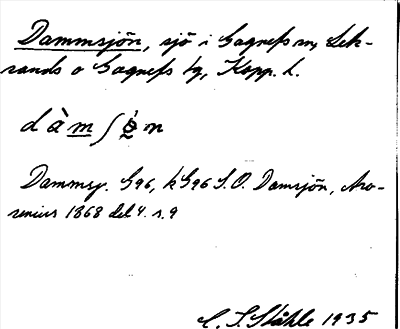 Dammsjön, sjö i Gagnefs sn, Lek-
sands o Gagnefs tg, Kopp. l.
dàmʃön
Dammsj. G96, kG96 S.O. Damsjön, Aro-
senius 1868 del 4. s. 9
C. I. Ståhle 1935